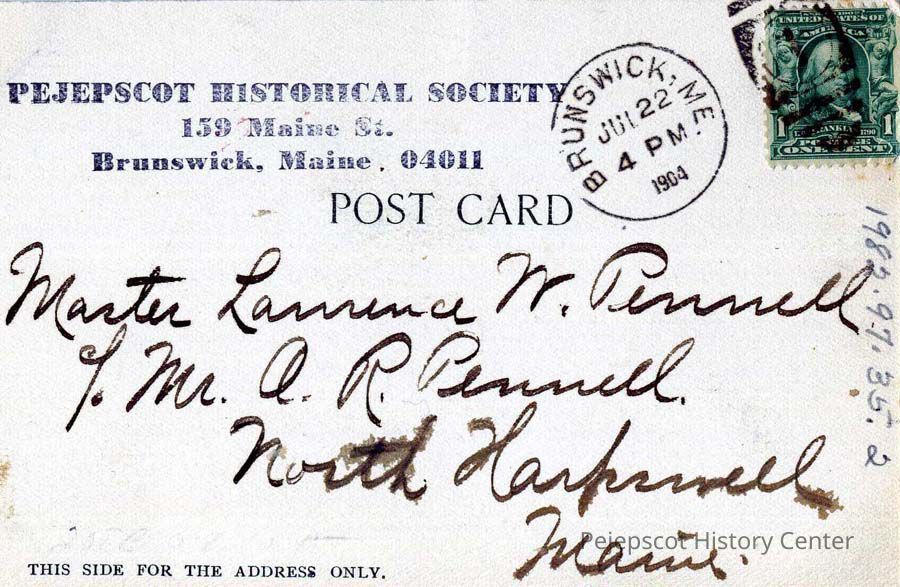 PEJEPSCOT HISTORICAL SOCIETY
159 Maine St.
Brunswick, Maine. 04011
BRUNSWICK, ME.
JUL 22
4 PM
1904
UNITED STATES OF
AMERICA
1 FRANKLIN 1790 1
POSTAGE
ONE CENT
POST CARD
Master Lawrence W. Pennell
c/. Mr. A. R. Pennell.
North Harpswell
Maine.
1982.97.35.2
Pejepscot History Center
THIS SIDE FOR THE ADDRESS ONLY.